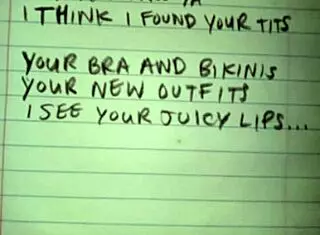 I THINK I FOUND YOUR TITS
YOUR BRA AND BIKINIS
YOUR NEW OUTFITS
I SEE YOUR JUICY LIPS...